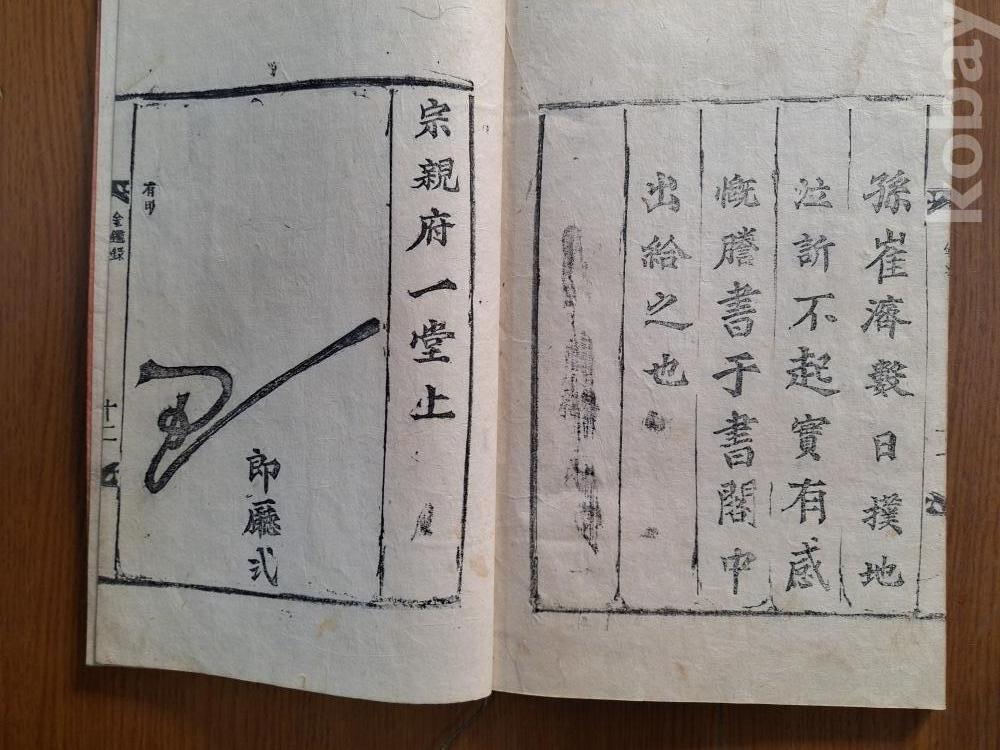 孫崔濟數日撲地
泣訴不起實有感
慨謄書于書閣中
出給之也
宗親府一堂上
郞廳弍
有印
金鑑錄
十二
kobay